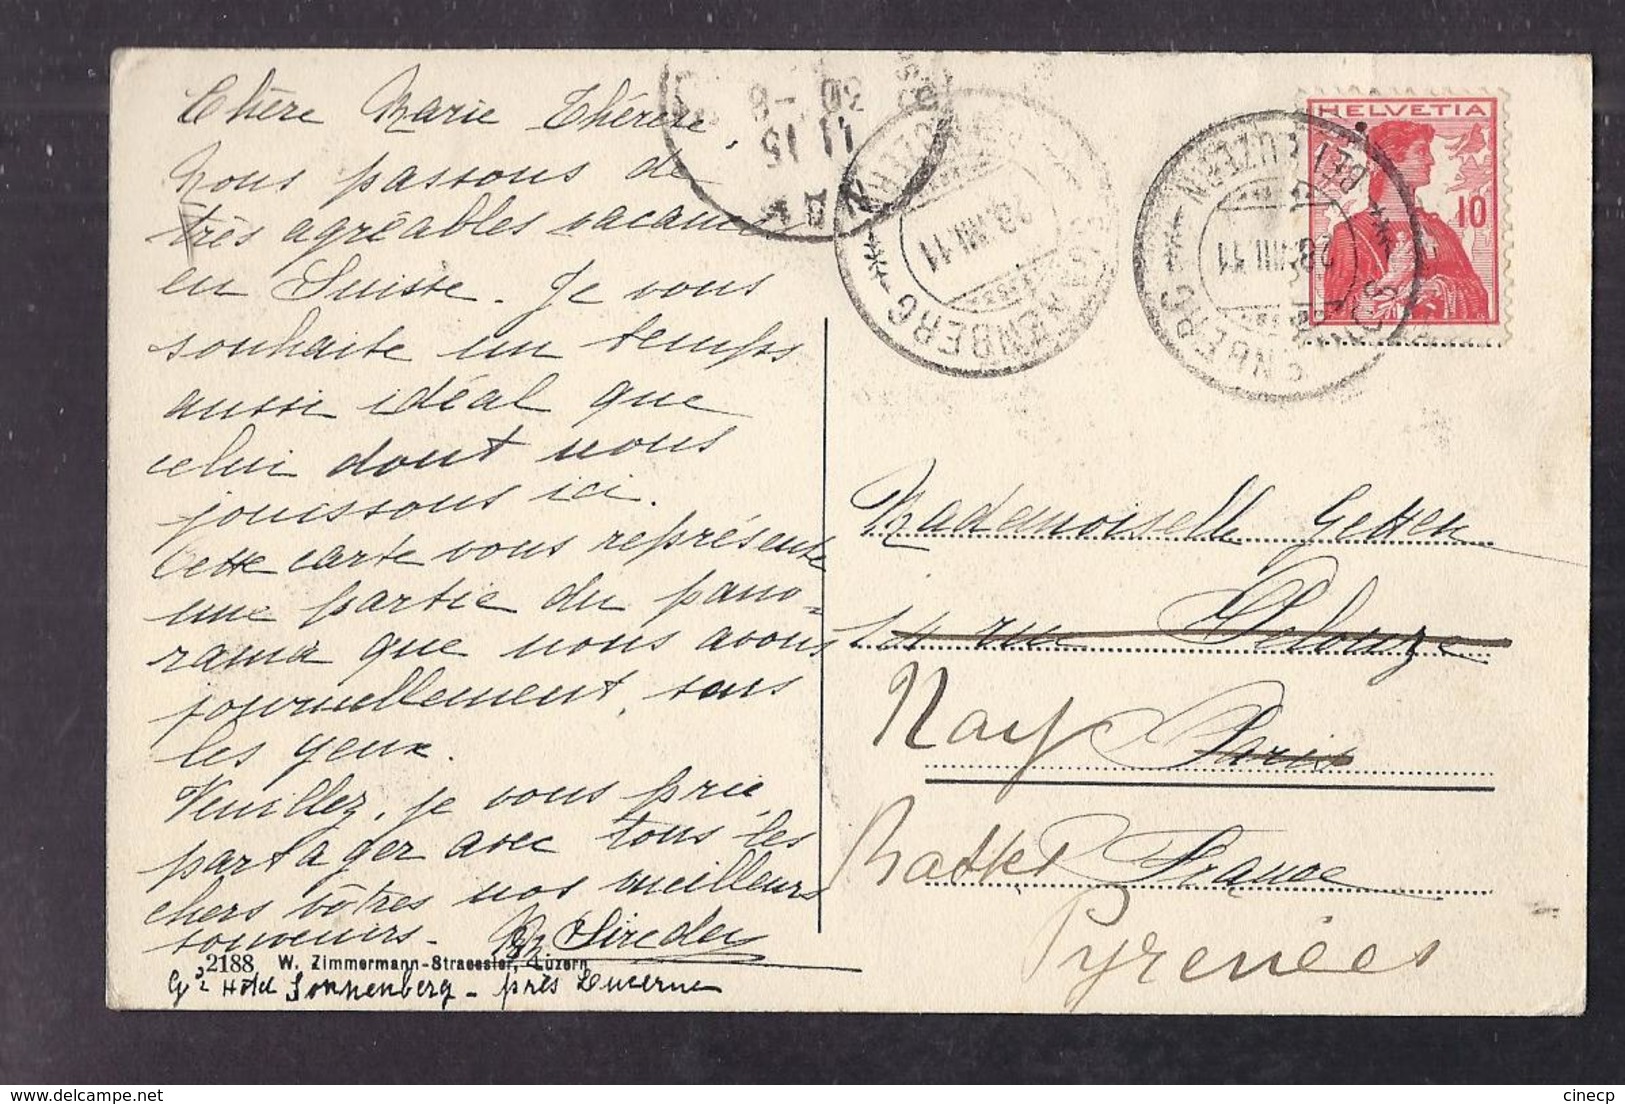 Chère Marie Thérèse
Nous passons de
très agréables vacances
en Suisse. Je vous
souhaite un temps
aussi idéal que
celui dont nous
jouissons ici.
Cette carte vous représente
une partie du pano-
rama que nous avons
journellement, sous
les yeux.
Veuillez, je vous prie,
partager avec tous les
chers vôtres nos meilleurs
souvenirs.
2188 W. Zimmermann-Straessler, Luzern
Hôtel Sonnenberg - près Lucerne
HELVETIA
10
SONNENBERG
BEI LUZERN
28.VIII.11
SONNENBERG
LUZERN
28.VIII.11
NAY
11 15
30 -8
Mademoiselle Getten
14 rue Pelouze
Nay Paris
France
Pyrénées
cinecp